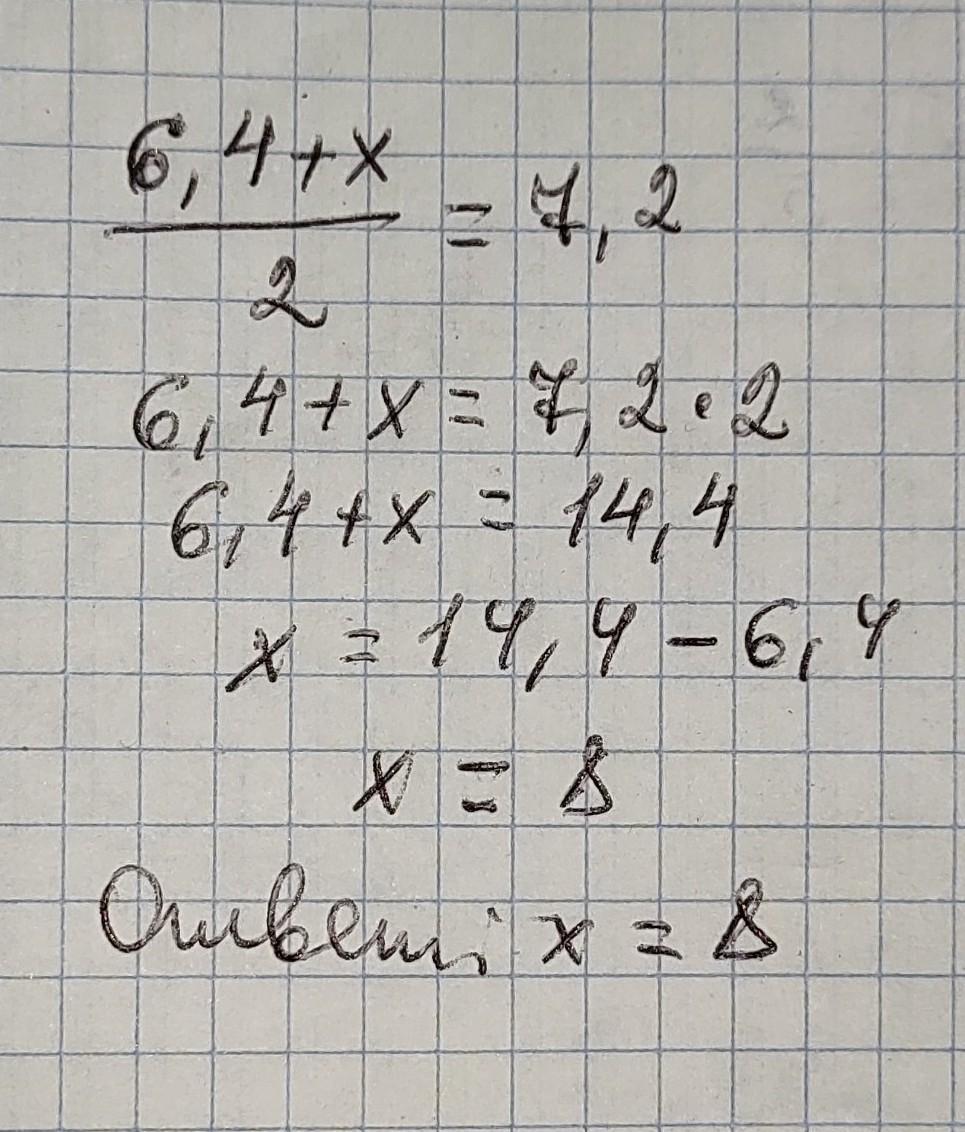 6,4+x
2
= 7,2
6,4+x = 7,2·2
6,4+x = 14,4
x = 14,4 - 6,4
x = 8
Ответ: x = 8